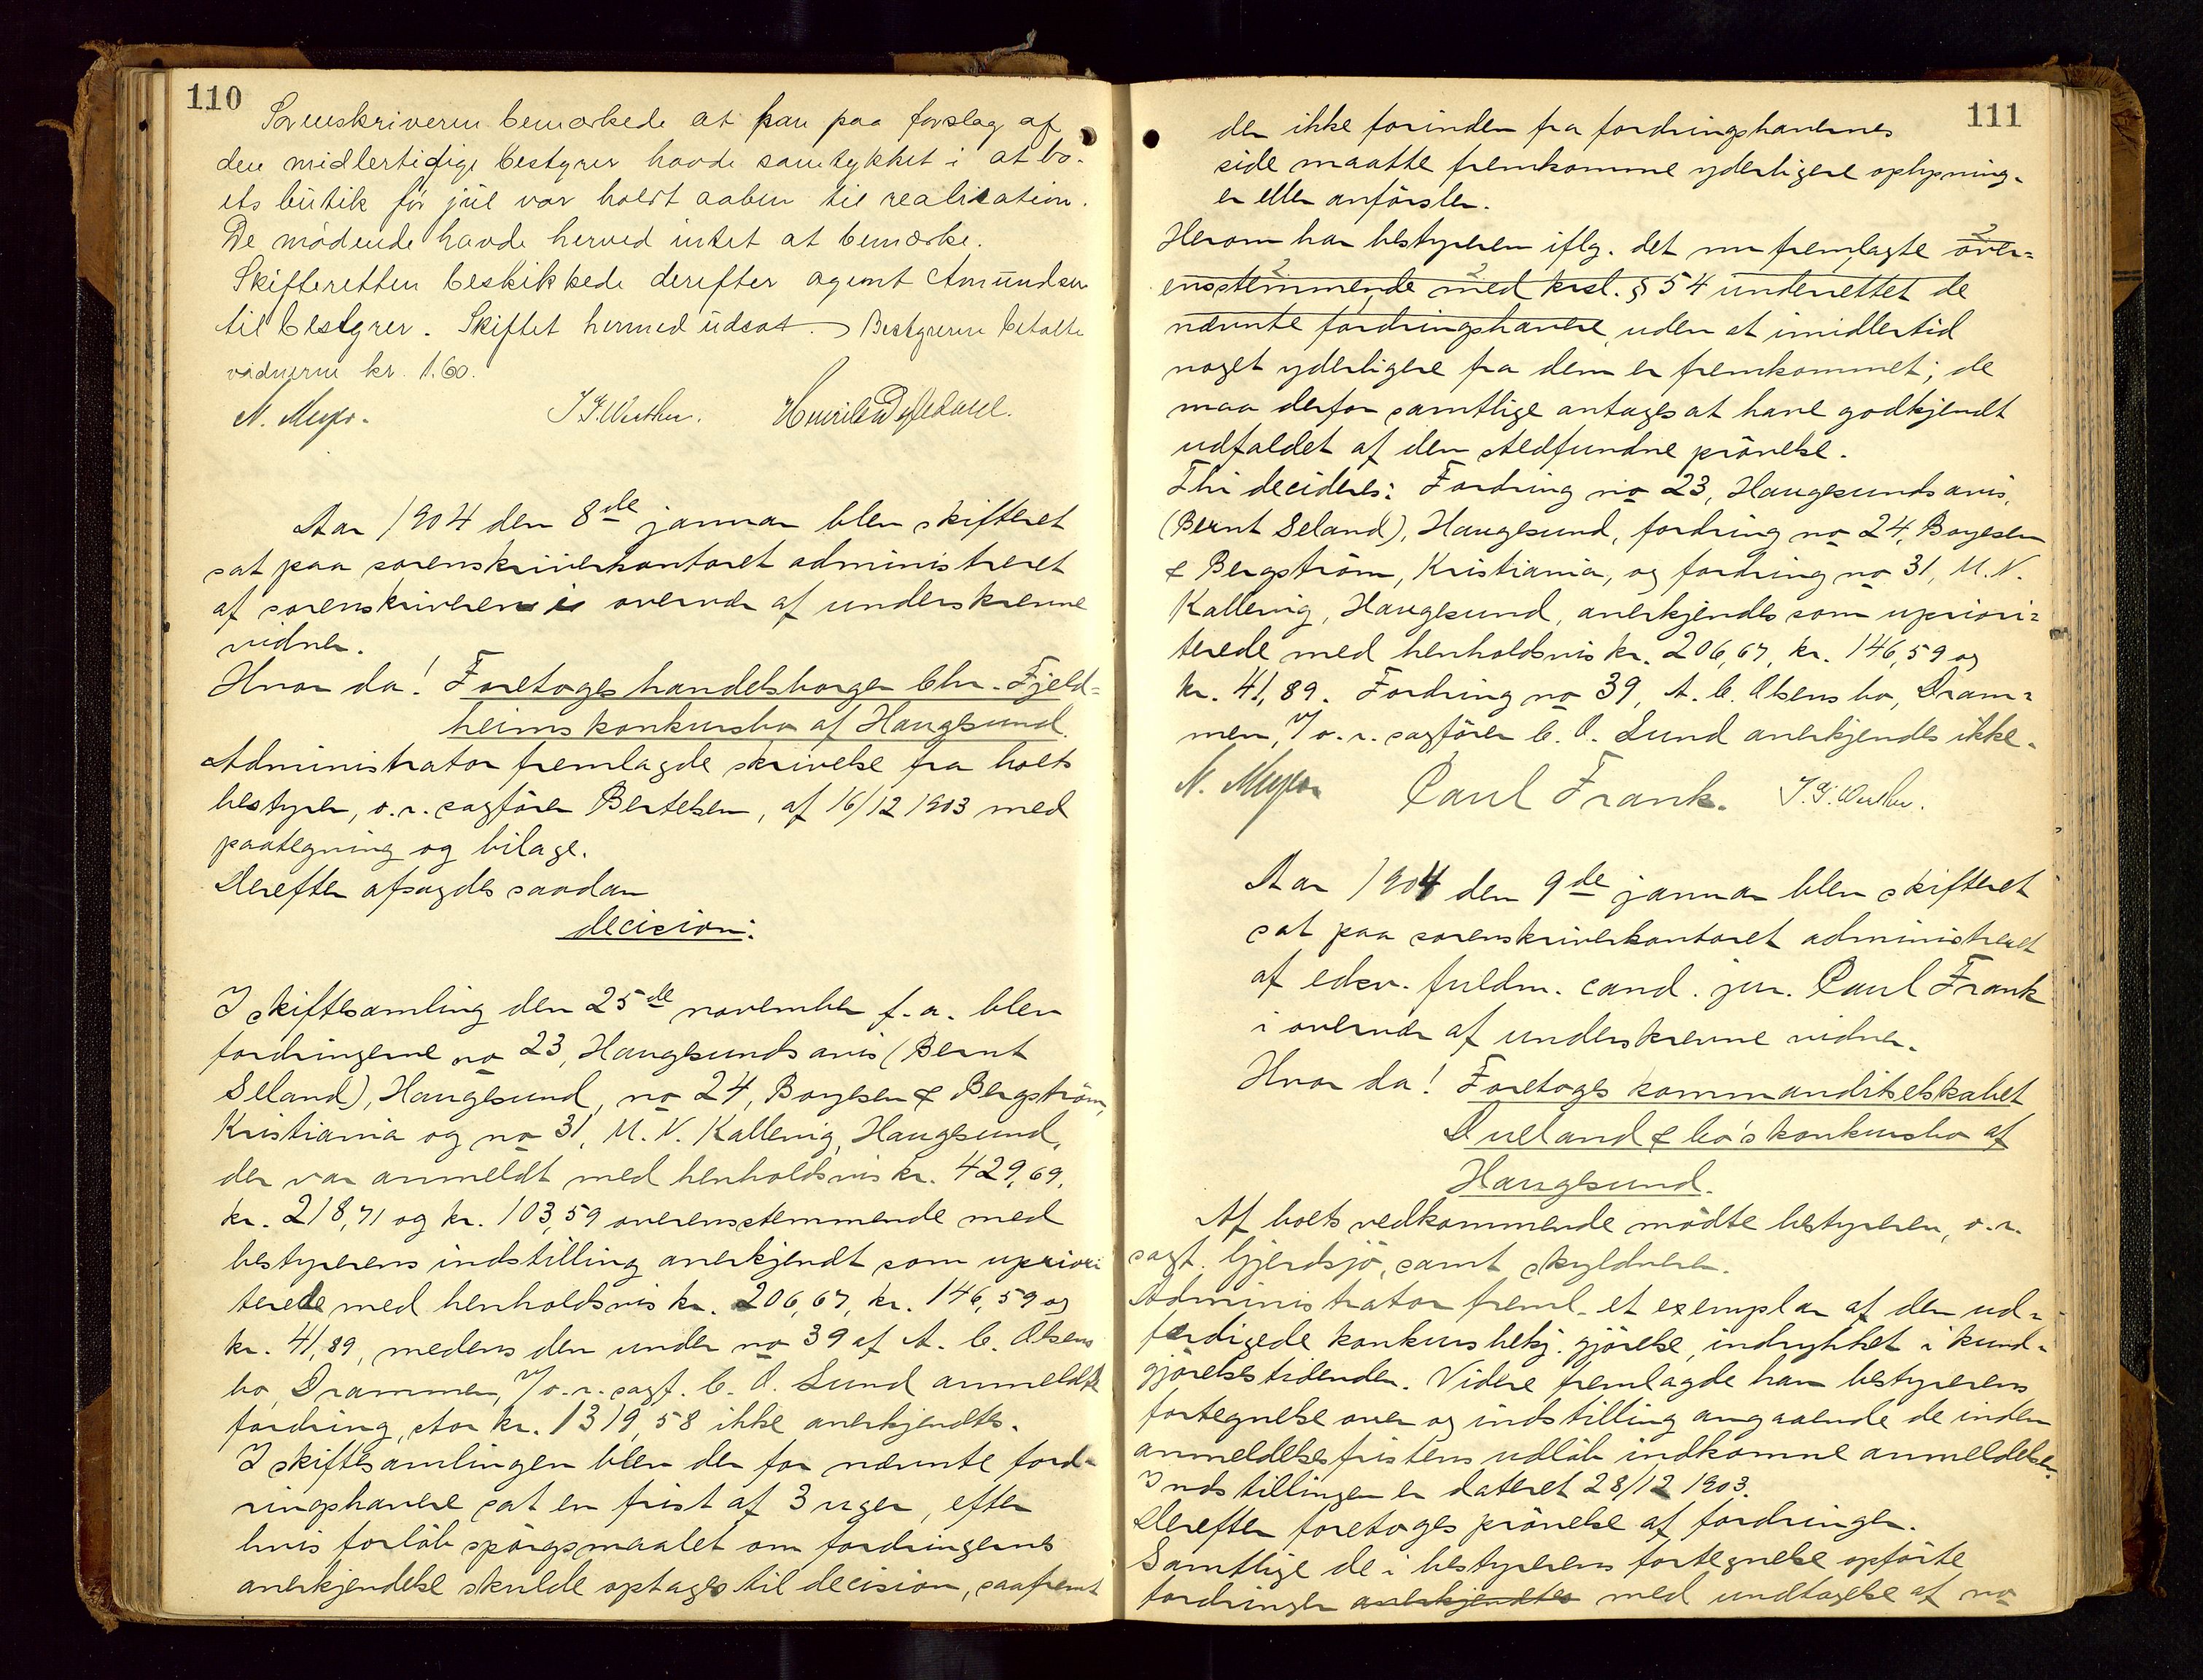 110
Sorenskriveren bemærkede at han paa forslag af
den midlertidige bestyrer havde samtykket i at bo-
ets butik før jul var holdt aaben til realisation.
De mødende havde herved intet at bemærke.
Skifteretten beskikkede derefter agent Amundsen
til bestyrer. Skiftet hermed udsat. Bestyreren betalte
vidnerne kr. 1.60.
N. Meyer.
Aar 1904 den 8de januar blev skifteret
sat paa sorenskriverkontoret administreret
af sorenskriveren i overvær af underskrevne
vidner.
Hvor da! Foretoges handelsborger Chr. Fjeld=
heims konkursbo af Haugesund.
Administrator fremlagde skrivelse fra boets
bestyrer, o.r.sagfører Bertelsen, af 16/12 1903 med
paategning og bilage.
Derefter afsagdes saadan
decision:
I skiftesamling den 25de november f.a. blev
fordringerne no 23, Haugesunds avis (Bernt
Seland), Haugesund, no 24, Boyesen & Bergström,
Kristiania og no 31, M. N. Kallevig, Haugesund,
der var anmeldt med henholdsvis kr. 429,69,
kr. 218,71 og kr. 103,59 overensstemmende med
bestyrerens indstilling anerkjendt som upriori
terede med henholdsvis kr. 206,67, kr. 146,59 og
kr. 41,89, medens den under no 39 af A. C. Olsens
bo, Drammen, v/ o.r.sagf. C. O. Lund anmeldte
fordring, stor kr. 1319,58 ikke anerkjendtes.
I skiftesamlingen blev der for nævnte ford-
ringshavere sat en frist af 3 uger, efter
hvis forløb spørgsmaalet om fordringerns
anerkjendelse skulde optages til decision, saafremt
111
der ikke forinden fra fordringshavernes
side maatte fremkomme yderligere oplysning-
er eller anførsler.
Herom har bestyreren iflg. det nu fremlagte over=
ensstemmende med krsl. § 54 underrettet de
nævnte fordringshavere, uden at imidlertid
noget yderligere fra dem er fremkommet; de
maa derfor samtlige antages at have godkjendt
udfaldet af den stedfundne prøvelse.
Thi decideres: Fordring no 23, Haugesunds avis,
(Bernt Seland), Haugesund, fordring no 24, Boyesen
& Bergström, Kristiania, og fordring no 31, M. N.
Kallevig, Haugesund, anerkjendes som upriori=
terede med henholdsvis kr. 206,67, kr. 146,59 og
kr. 41,89. Fordring no 39, A. C. Olsens bo, Dram=
men, v/ o.r.sagfører C. O. Lund anerkjendes ikke.
N. Meyer Paul Frank.
Aar 1904 den 9de januar blev skifteret
sat paa sorenskriverkontoret administreret
af edsv. fuldm. cand. jur. Paul Frank
i overvær af underskrevne vidner.
Hvor da! Foretoges kommanditselskabet
Dueland & Co's konkursbo af
Haugesund.
Af boets vedkommende mødte bestyreren, o.r.
sagf. Gjerdsjø, samt skyldneren.
Administrator freml. et exemplar af den ud-
færdigede konkursbekj. gjørelse, indrykket i kund-
gjørelsestidenden. Videre fremlagde han bestyrerens
fortegnelse over og indstilling angaaende de inden
anmeldelsesfristens udløb indkomne anmeldelser.
Indstillingen er dateret 28/12 1903.
Derefter foretoges prøvelse af fordringer.
Samtlige de i bestyrerens fortegnelse opførte
fordringer anerkjendtes med undtagelse af no